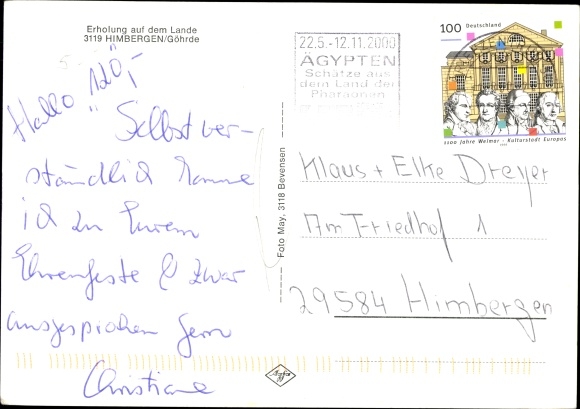 Erholung auf dem Lande
3119 HIMBERGEN/Göhrde
Hallo 120,-
Selbstver-
ständlich komme
ich zu Eurem
Ehrenfeste & zwar
ausgesprochen gern
Christiane
Foto May, 3118 Bevensen
22.5.-12.11.2000
ÄGYPTEN
Schätze aus
dem Land der
Pharaonen
100 Deutschland
1100 Jahre Weimar - Kulturstadt Europas
1999
Klaus + Elke Dreyer
Am Friedhof 1
29584 Himbergen
Agfa